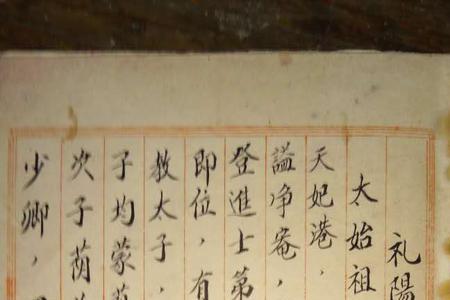 礼陽
太始祖
天妃港，
謚净菴，
登進士第
即位，有
教太子，
子均蒙
次子
少卿，